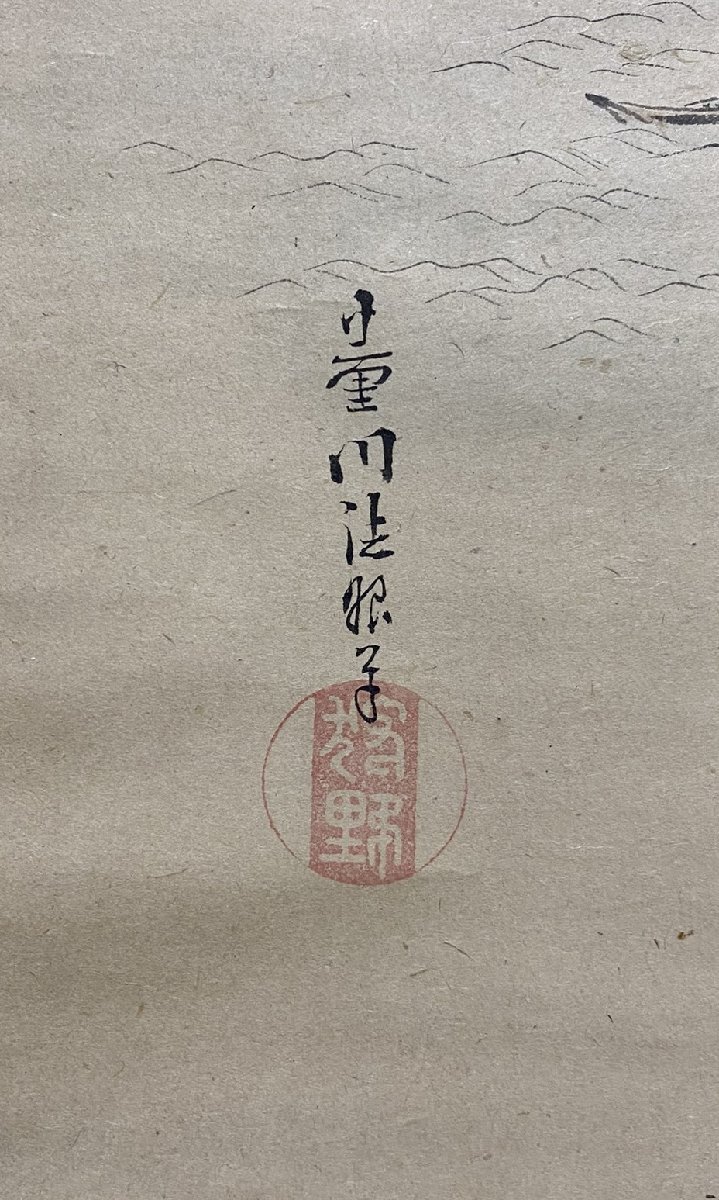 董川法眼筆
狩野